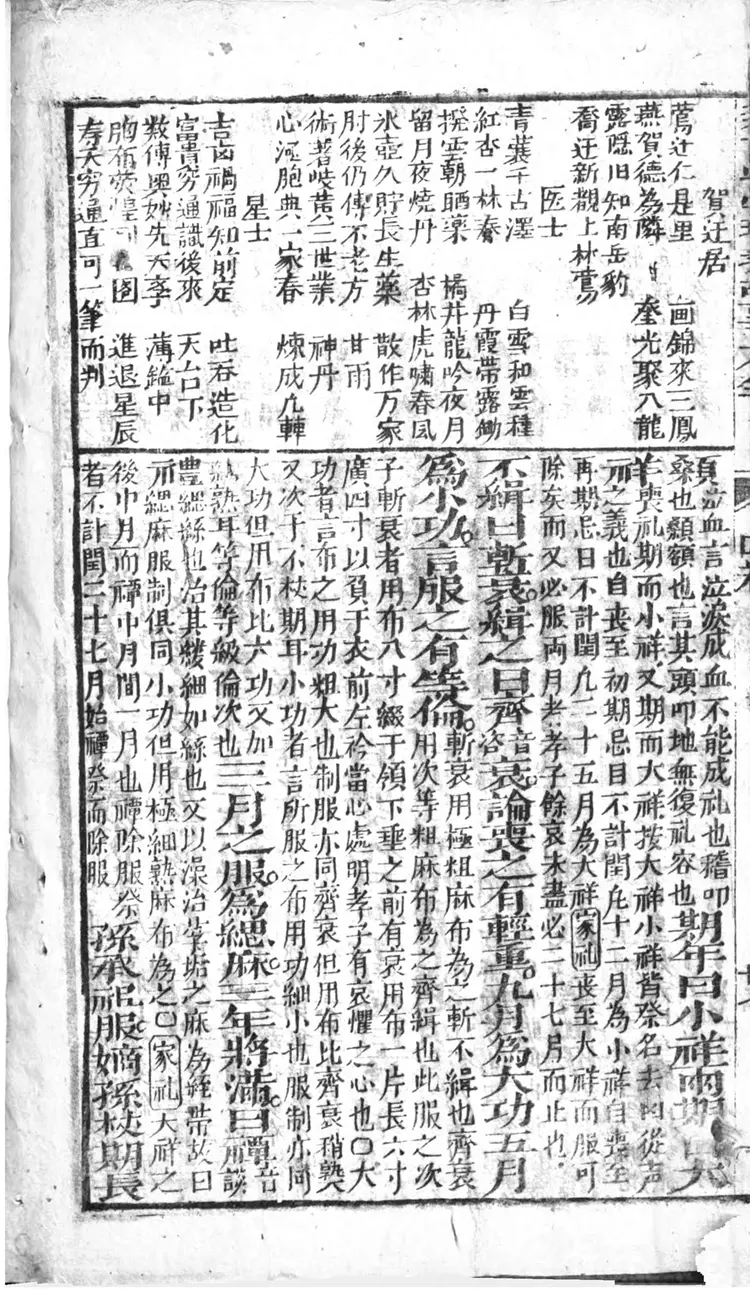 賀迁居
鶯迁仁是里 画錦來三鳳
燕賀德為隣 奎光聚八龍
露隠旧知南岳豹
喬迁新觀上林鶯
医士
青囊千古澤 白雲和雲種
紅杏一林春 丹霞帶露鋤
撥雲朝晒藥 橘井龍吟夜月
留月夜燒丹 杏林虎嘯春風
氷壺久貯長生藥 散作万家
肘後仍傳不老方 甘雨
術著岐黃三世業 神丹
心涵胞典一家春 煉成九轉
星士
吉凶禍福知前定 吐吞造化
富貴穷通識後來 天台下
数傳輿妙先天李 薄鎰中
胸布熒煌 圖 進退星辰
寿夭穷通直可一筆而判
泣血言泣淚成血不能成礼也稽叩
桑也顙額也言其頭叩地無復礼容也期年曰小祥兩期曰大
祥喪礼期而小祥又期而大祥按大祥小祥皆祭名去凶從声
之義也自喪至初期忌日不計閏凢十二月為小祥自喪至
再期忌日不計閏凢二十五月為大祥家礼喪至大祥而服可
除矣而又必服兩月者孝子餘哀未盡必二十七月而止也
不緝曰斬衰緝之曰齊音咨衰論喪之有輕重九月為大功五月
為小功言服之有等倫斬衰用極粗麻布為之斬不緝也齊衰
用次等粗麻布為之齊緝也此服之次
子斬衰者用布八寸綴于領下垂之前有衰用布一片長六寸
廣四寸以負于衣前左衿當心處明孝子有哀懼之心也〇大
功者言布之用功粗大也制服亦同齊衰但用布比齊衰稍熟
又次于不杖期耳小功者言所服之布用功細小也服制亦同
大功但用布比大功又加
熟耳等倫等級倫次也三月之服為緦麻三年將滿曰禫音
豊緦絲也治其縷細如絲也又以澡治莩垢之麻為絰帶故曰
緦麻服制俱同小功但用極細熟麻布為之〇家礼大祥之
後中月而禫中月間一月也禫除服祭孫承祖服嫡孫杖期長
者不計閏二十七月始禫祭而除服